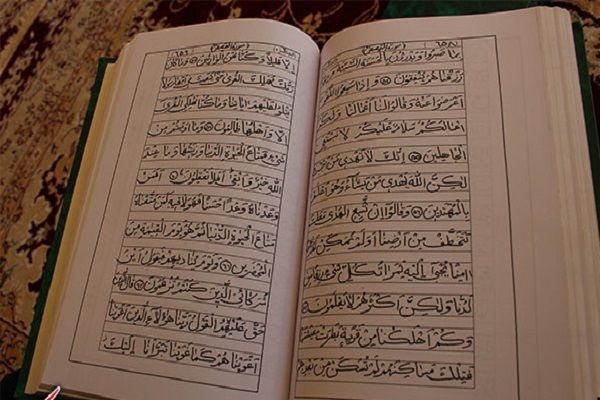 سورة القصص
بما صبروا ويدرؤن بالحسنة السيئة ومما
رزقناهم ينفقون و اذا سمعوا اللغو
اعرضوا عنه وقالوا لنا اعمالنا ولكم
اعمالكم سلام عليكم لا نبتغي
الجاهلين انك لا تهدي من
لكن الله يهدي من يشاء وهو اعلم
بالمهتدين وقالوا ان نتبع الهدى معك
نتخطف من ارضنا اولم نمكن لهم
امنا يجبى اليه ثمرات كل شيء رزقا من
لدنا ولكن اكثرهم لا يعلمون
وكم اهلكنا من قرية بطرت معيشتها
فتلك مساكنهم لم تسكن من بعدهم
سورة القصص
الا قليلا وكنا نحن الوارثين وما كان
ربك مهلك القرى حتى يبعث في امها رسولا
يتلو عليهم اياتنا وما كنا مهلكي القرى
الا واهلها ظالمون وما اوتيتم من
شيء فمتاع الحيوة الدنيا وزينتها وما عند
الله خير وابقى افلا تعقلون افمن
وعدناه وعدا حسنا فهو لاقيه كمن متعناه
متاع الحيوة الدنيا ثم هو يوم القيمة من
المحضرين ويوم يناديهم فيقول اين
شركائي الذين كنتم تزعمون قال الذين
حق عليهم القول ربنا هؤلاء الذين اغوينا
اغويناهم كما غوينا تبرأنا اليك